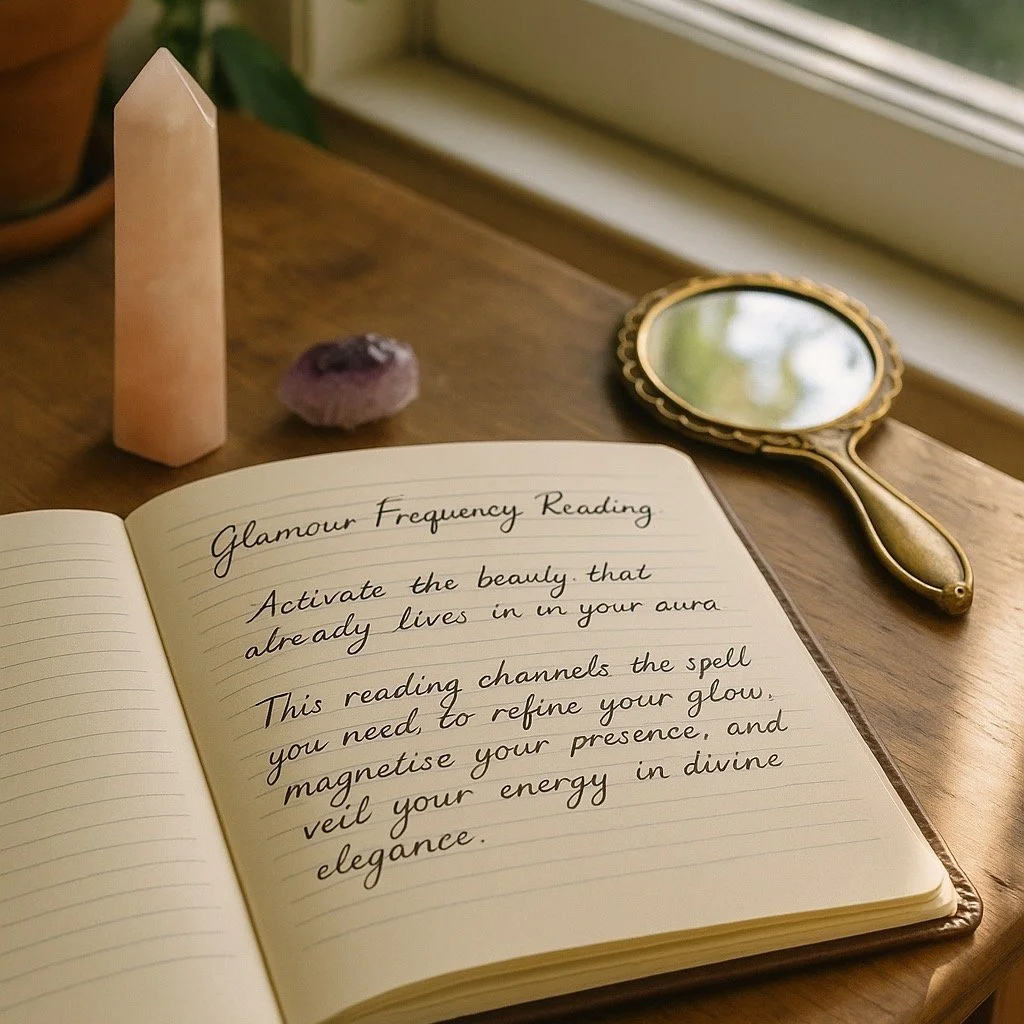 Glamour Frequency Reading.
Activate the beauty. that
already lives in in your aura
This reading channels the spell
you need, to refine your glow,
magnetise your presence, and
veil your energy in divine
elegance.